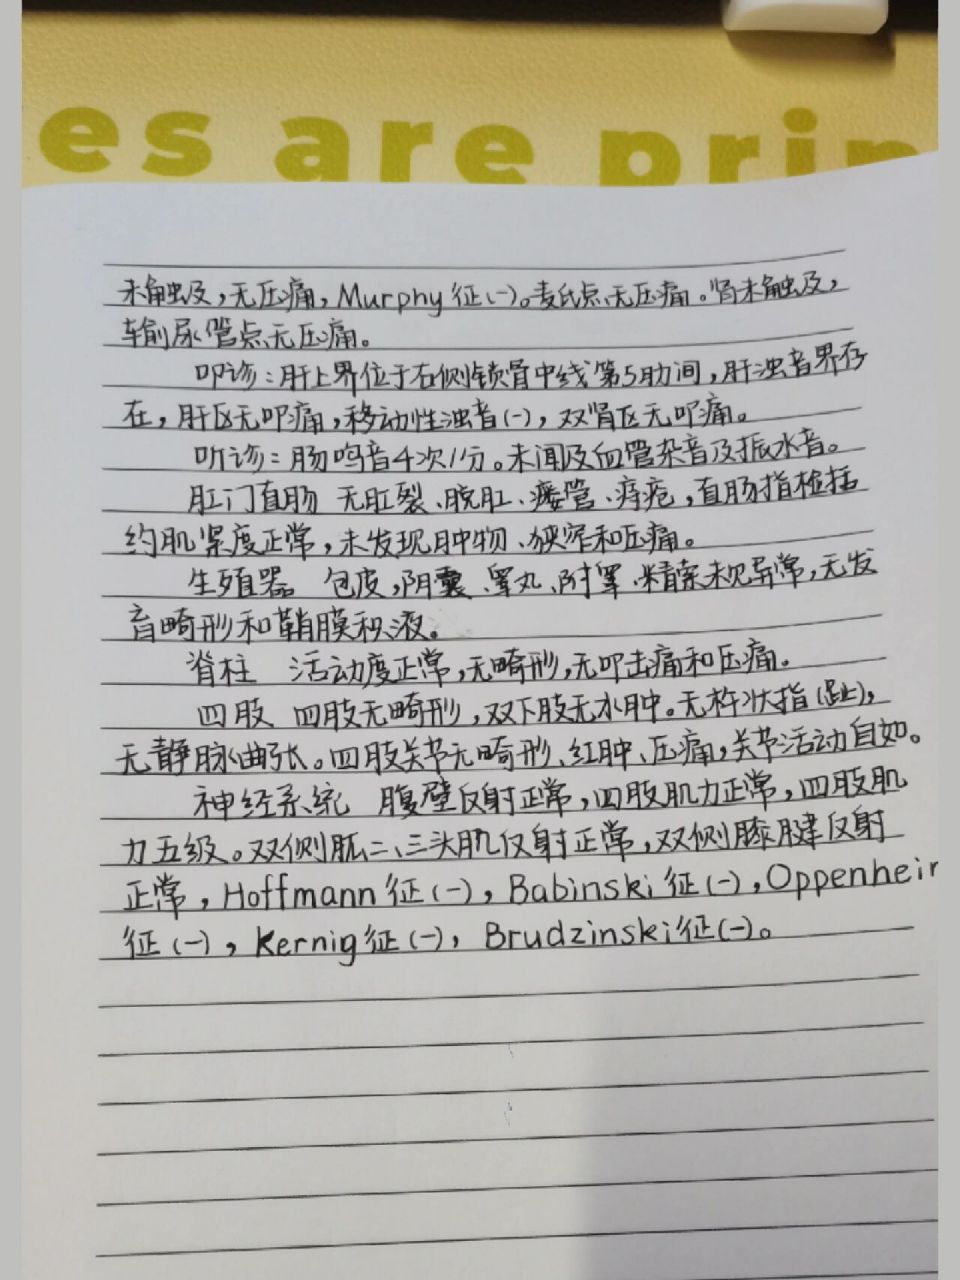 es are prin
未触及,无压痛,Murphy征(-)。麦氏点无压痛。肾未触及,
输尿管点无压痛。
叩诊:肝上界位于右侧锁骨中线第5肋间,肝浊音界存
在,肝区无叩痛,移动性浊音(-),双肾区无叩痛。
听诊:肠鸣音4次/分。未闻及血管杂音及振水音。
肛门直肠 无肛裂、脱肛、瘘管、痔疮,直肠指检括
约肌紧度正常,未发现肿物、狭窄和压痛。
生殖器 包皮、阴囊、睾丸、附睾、精索未见异常,无发
育畸形和鞘膜积液。
脊柱 活动度正常,无畸形,无叩击痛和压痛。
四肢 四肢无畸形,双下肢无水肿。无杵状指(趾),
无静脉曲张。四肢关节无畸形、红肿、压痛,关节活动自如。
神经系统 腹壁反射正常,四肢肌力正常,四肢肌
力五级。双侧肱二、三头肌反射正常,双侧膝腱反射
正常,Hoffmann征(-),Babinski征(-),Oppenheim
征(-),Kernig征(-),Brudzinski征(-)。